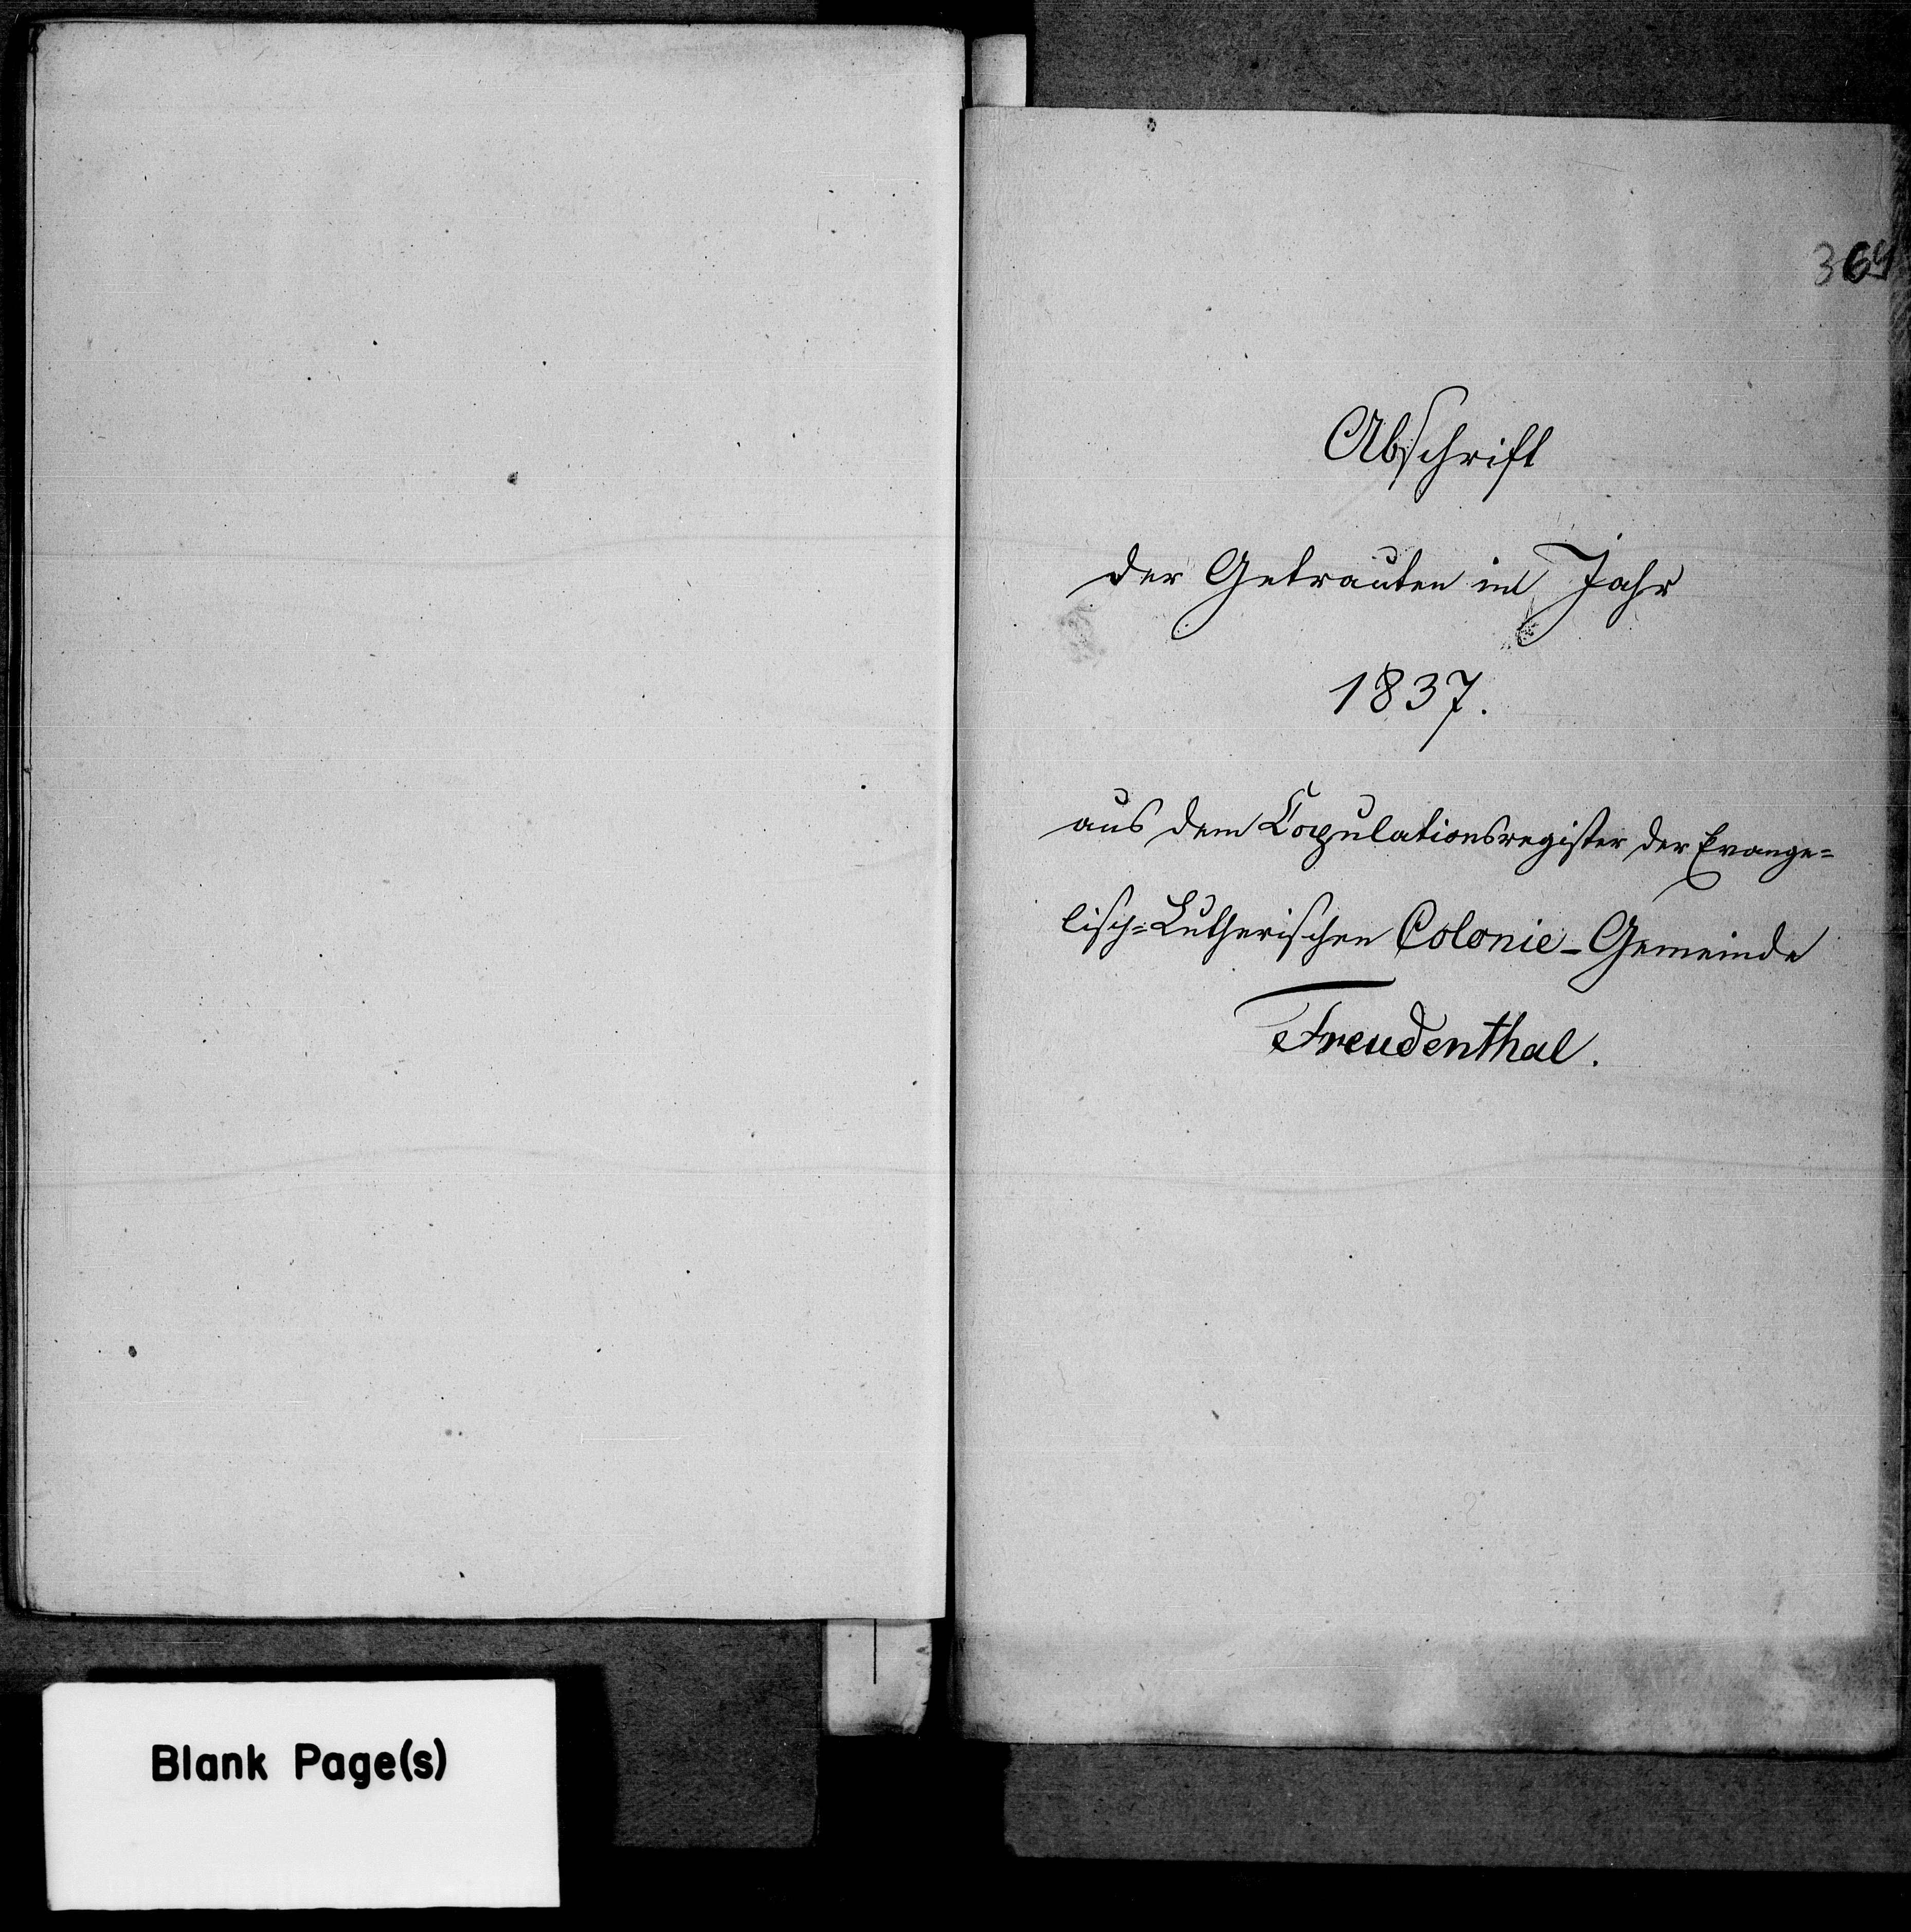 Abschrift
der Getrauten im Jahr
1837.
aus dem Copulationsregister der Evange=
lisch=Lutherischen Colonie-Gemeinde
Freudenthal.
Blank Page(s)